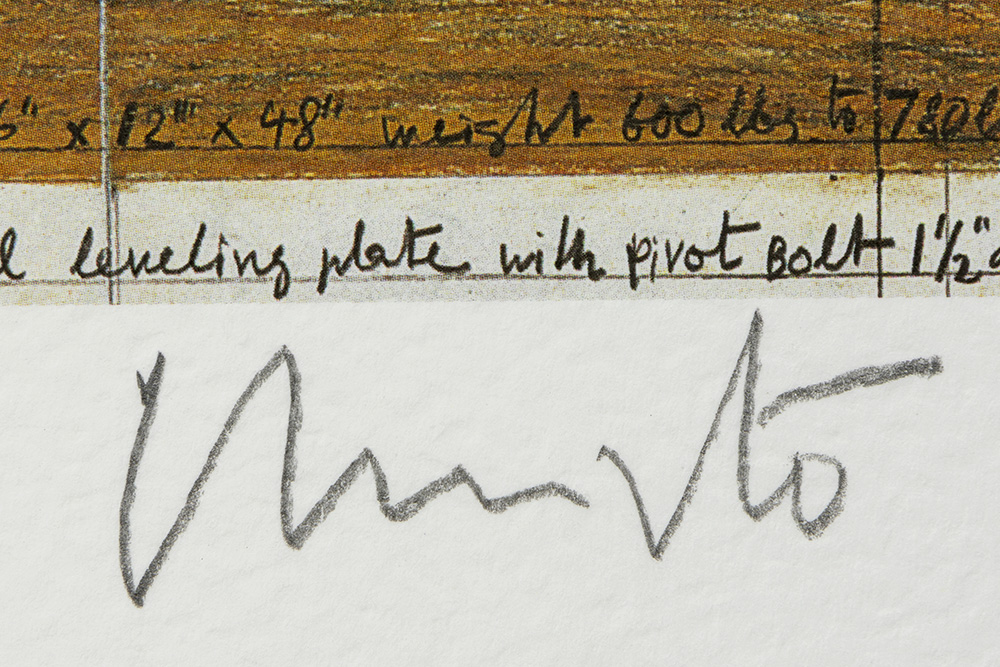 6" x 12''' x 48" weight 600 lbs to 780 l
l leveling plate with pivot Bolt 1½"
Christo